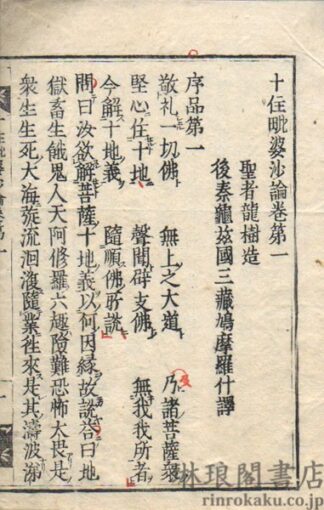 十住毗婆沙論卷第一
聖者龍樹造
後秦龜茲國三藏鳩摩羅什譯
序品第一
敬礼一切佛 無上之大道 乃諸菩薩衆
堅心住十地 聲聞辟支佛 無我我所者
今解十地義 隨順佛所說
問曰汝欲解菩薩十地義以何因縁故說答曰地
獄畜生餓鬼人天阿修羅六趣險難恐怖大畏是
衆生生死大海旋流洄澓隨業往來是其濤波涕
林琅閣書店
rinrokaku.co.jp